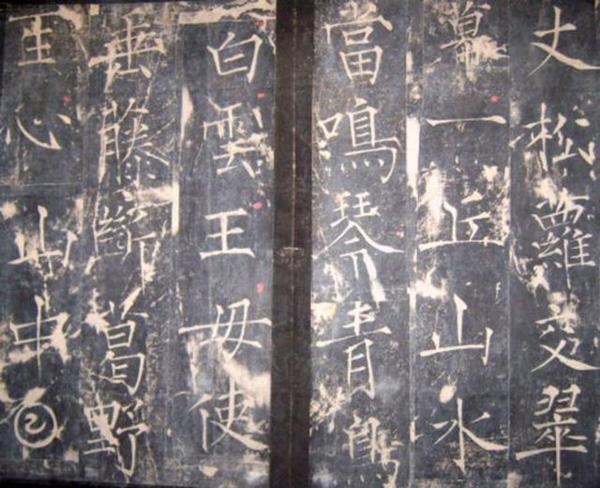 丈松蘿交翠
幕一丘山水
當鳴琴青鳥
白雲王母使
垂藤斷葛野
𤯔心山中𡆠